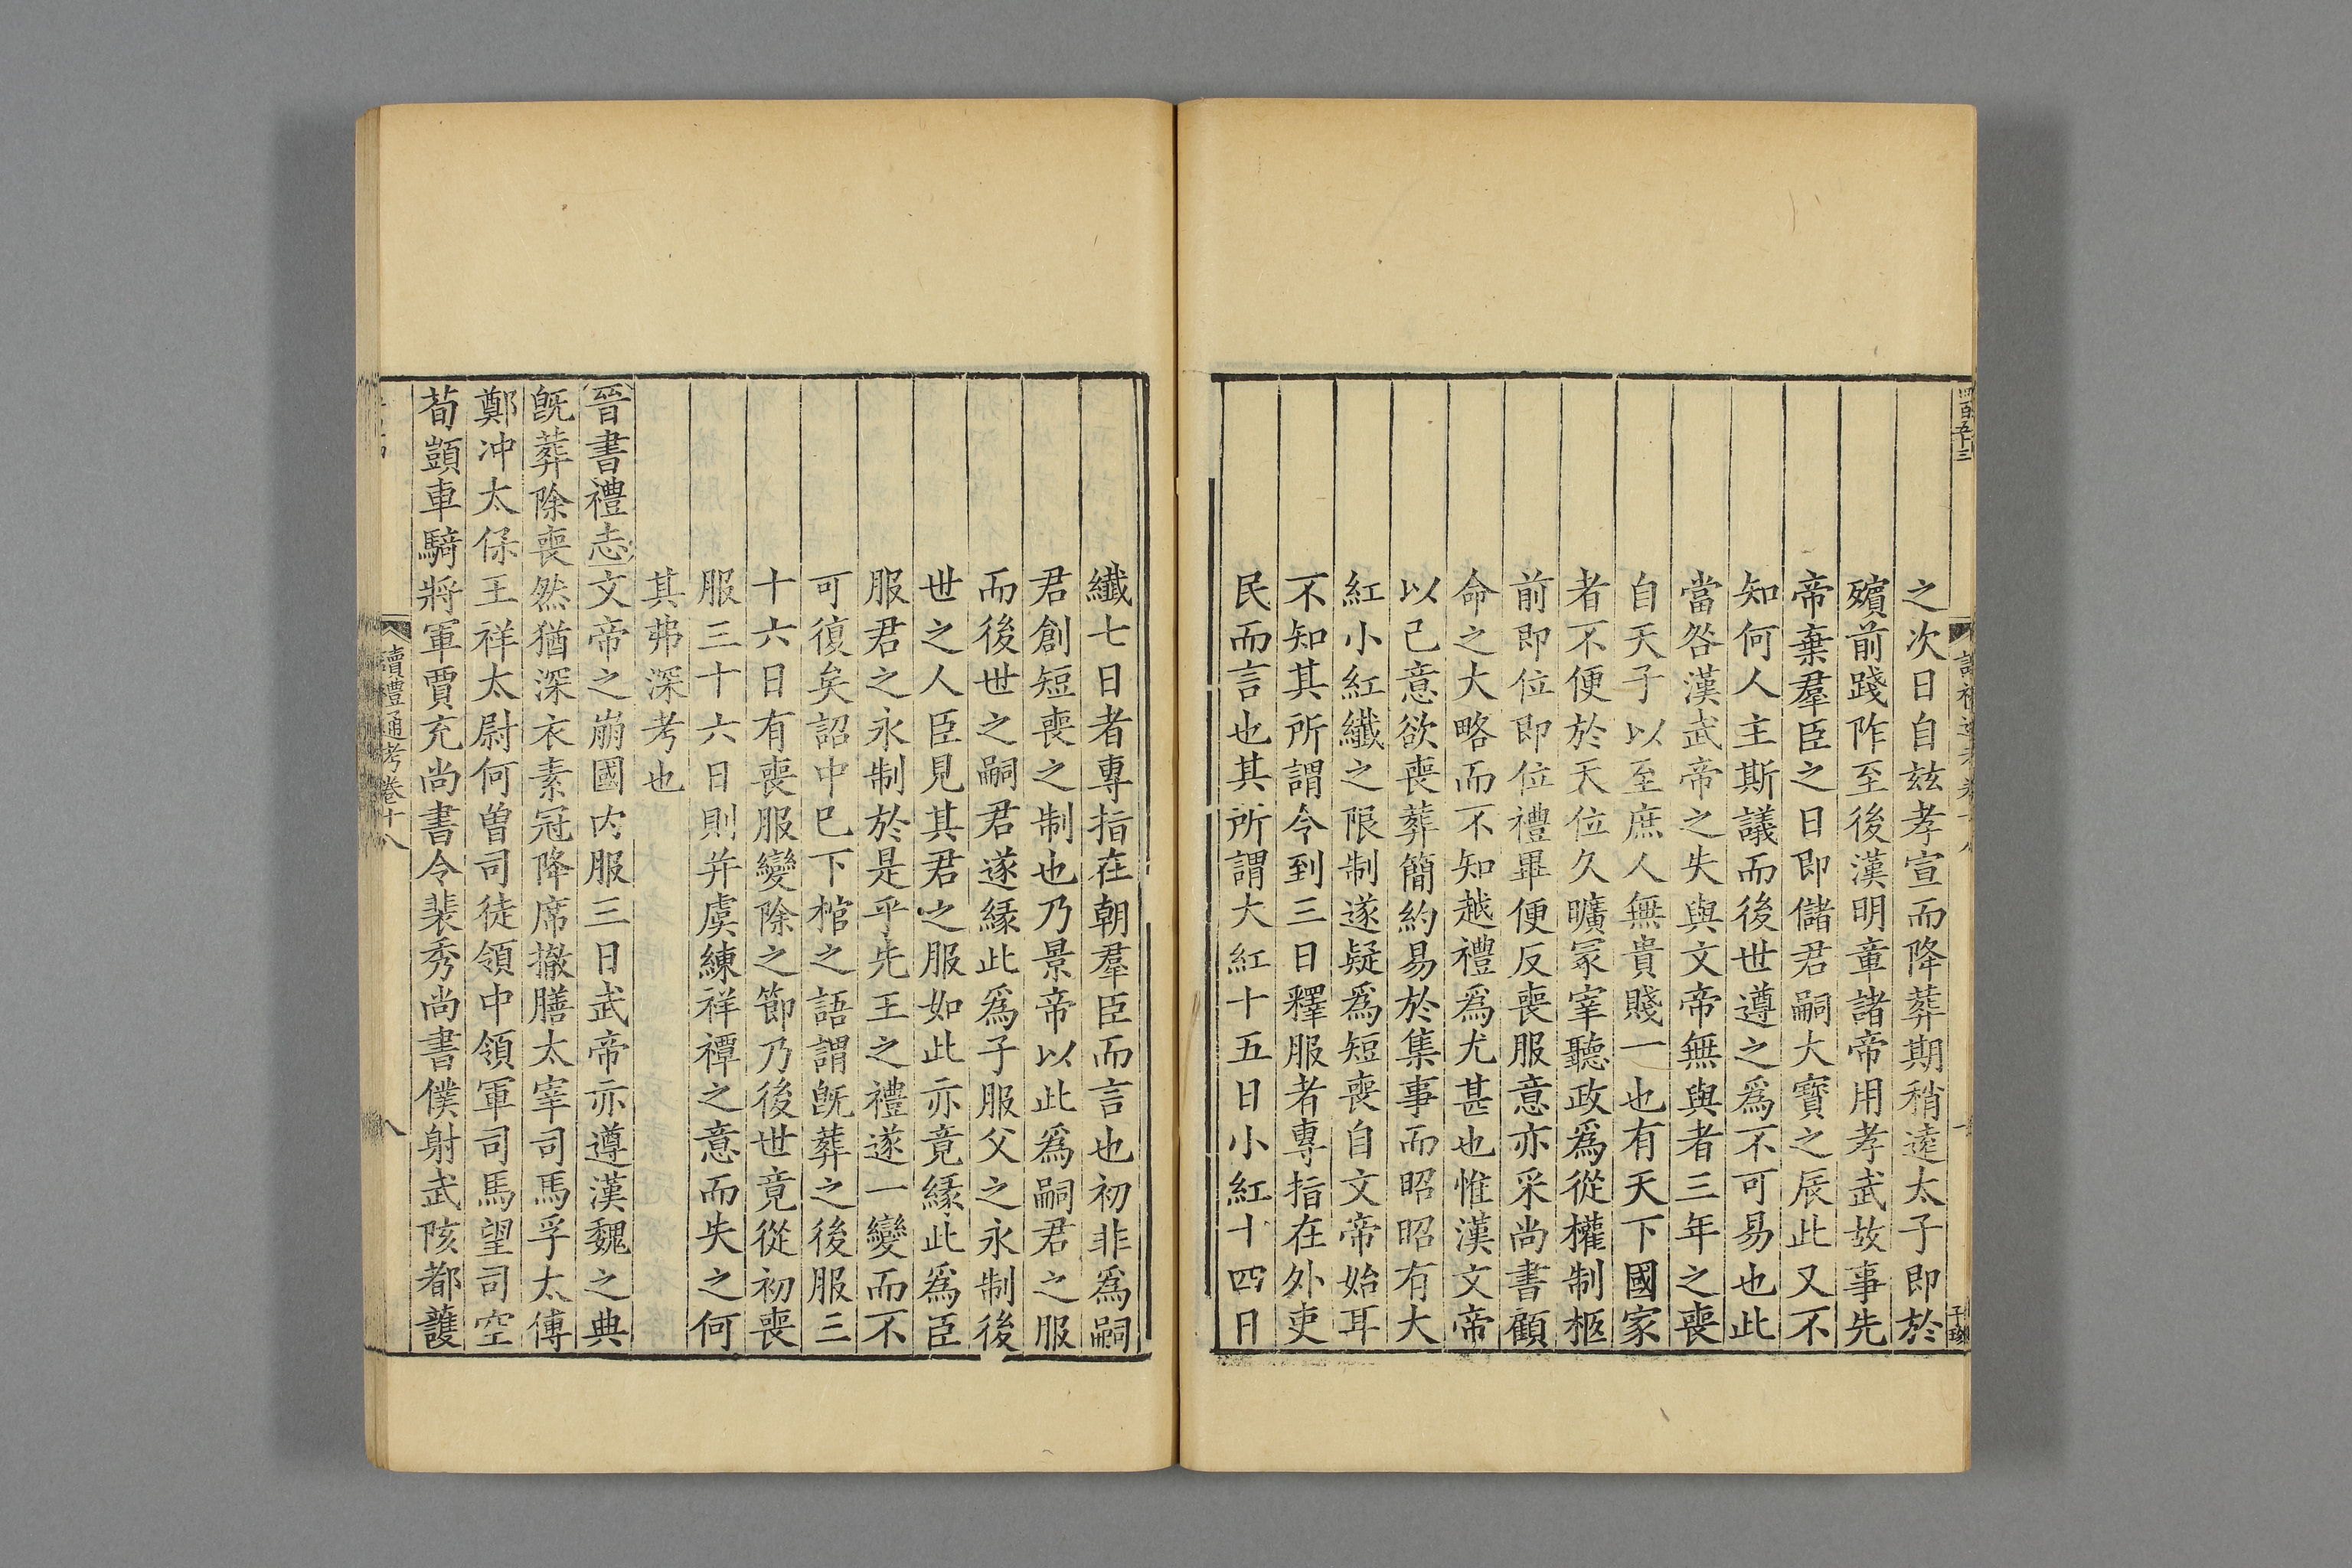 四百五十三
之次日自玆孝宣而降葬期稍遠太子即於
殯前踐阼至後漢明章諸帝用孝武故事先
帝棄羣臣之日即儲君嗣大寶之辰此又不
知何人主斯議而後世遵之爲不可易也此
當咎漢武帝之失與文帝無與者三年之喪
自天子以至庶人無貴賤一也有天下國家
者不便於天位久曠冢宰聽政爲從權制柩
前即位即位禮畢便反喪服意亦采尚書顧
命之大略而不知越禮爲尤甚也惟漢文帝
以己意欲喪葬簡約易於集事而昭昭有大
紅小紅纖之限制遂疑爲短喪自文帝始耳
不知其所謂今到三日釋服者專指在外吏
民而言也其所謂大紅十五日小紅十四日
纖七日者專指在朝羣臣而言也初非爲嗣
君創短喪之制也乃景帝以此爲嗣君之服
而後世之嗣君遂緣此爲子服父之永制後
世之人臣見其君之服如此亦竟緣此爲臣
服君之永制於是乎先王之禮遂一變而不
可復矣詔中已下棺之語謂旣葬之後服三
十六日有喪服變除之節乃後世竟從初喪
服三十六日則并虞練祥禫之意而失之何
其弗深考也
晉書禮志文帝之崩國內服三日武帝亦遵漢魏之典
旣葬除喪然猶深衣素冠降席撤膳太宰司馬孚太傅
鄭冲太保王祥太尉何曾司徒領中領軍司馬望司空
荀顗車騎將軍賈充尚書令裴秀尚書僕射武陔都護
讀禮通考卷十八
八